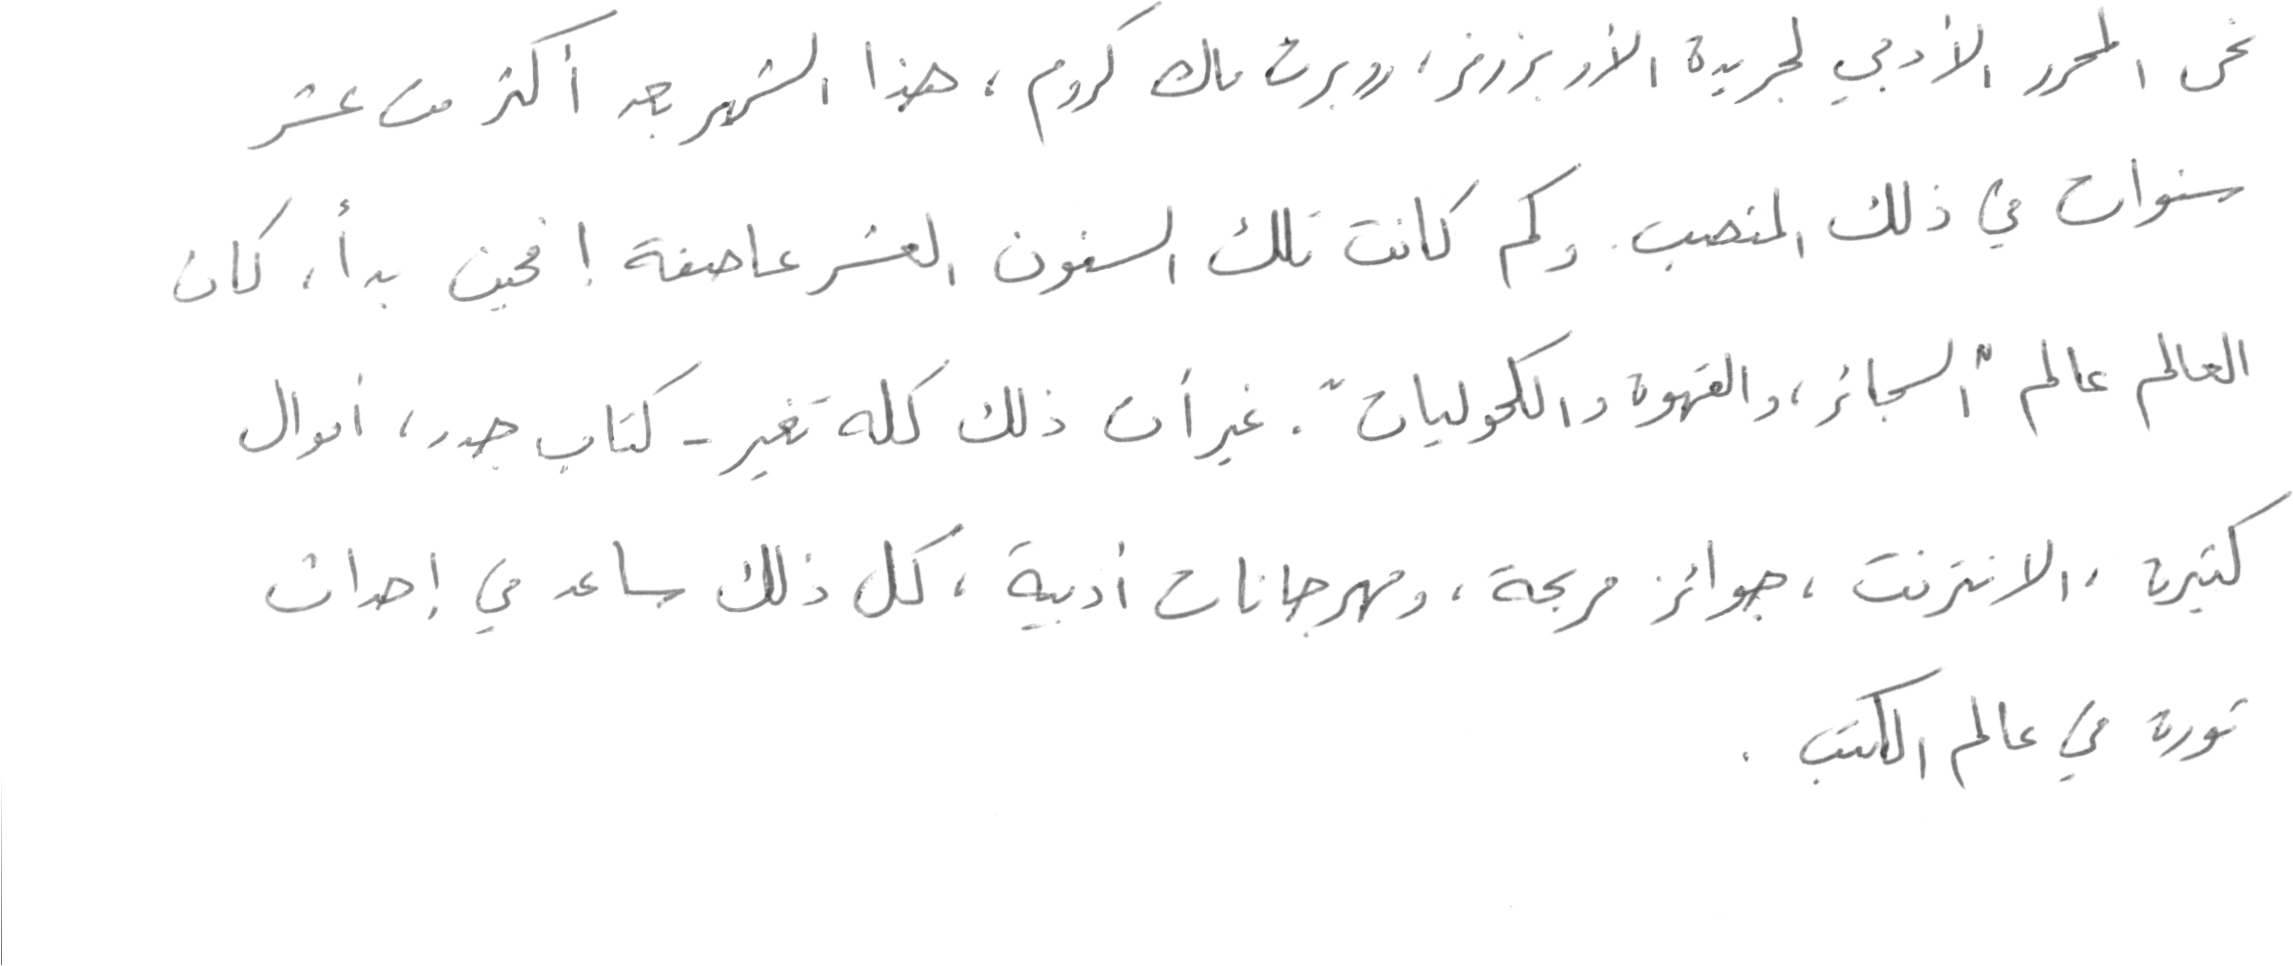 نحى المحرر الأدبي لجريدة الأوبزرفر، روبرت ماك كروم، هذا الشهر بعد أكثر من عشر
سنوات في ذلك المنصب. وكم كانت تلك السنون العشر عاصفة! فحين بدأ، كان
العالم عالم "السجائر، والقهوة والكحوليات". غير أن ذلك كله تغير - كتاب جدد، أموال
كثيرة، الانترنت، جوائز مربحة، ومهرجانات أدبية، كل ذلك ساعد في إحداث
ثورة في عالم الكتب.